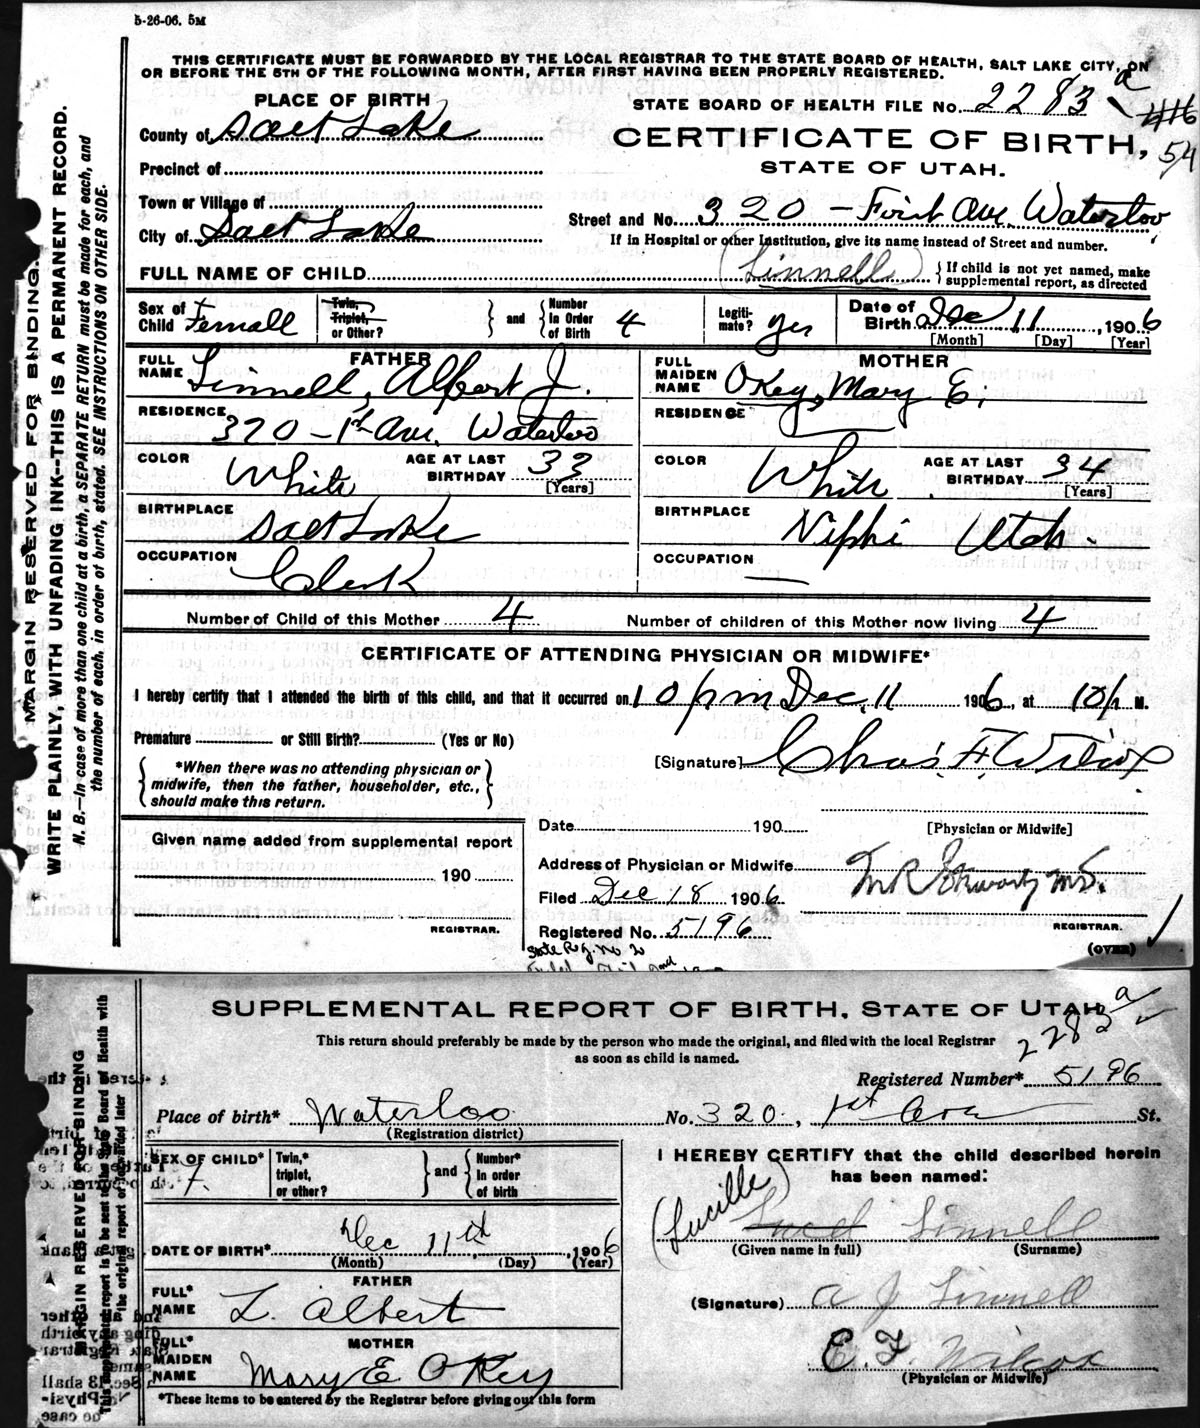 5-26-06. 5M
THIS CERTIFICATE MUST BE FORWARDED BY THE LOCAL REGISTRAR TO THE STATE BOARD OF HEALTH, SALT LAKE CITY, ON
OR BEFORE THE 5TH OF THE FOLLOWING MONTH, AFTER FIRST HAVING BEEN PROPERLY REGISTERED.
MARGIN RESERVED FOR BINDING.
WRITE PLAINLY, WITH UNFADING INK—THIS IS A PERMANENT RECORD.
N. B.—In case of more than one child at a birth, a SEPARATE RETURN must be made for each, and
the number of each, in order of birth, stated. SEE INSTRUCTIONS ON OTHER SIDE.
PLACE OF BIRTH
County of Salt Lake
Precinct of
Town or Village of
City of Salt Lake
STATE BOARD OF HEALTH FILE No. 2283 a
416
54
CERTIFICATE OF BIRTH,
STATE OF UTAH.
Street and No. 320 - First Ave. Waterloo
If in Hospital or other Institution, give its name instead of Street and number.
FULL NAME OF CHILD (Linnell) { If child is not yet named, make
supplemental report, as directed
Sex of Child Femall
Twin, Triplet, or Other? } and { Number In Order of Birth 4
Legiti-mate? yes
Date of Birth Dec 11, 1906
[Month] [Day] [Year]
FATHER
FULL NAME Linnell, Albert J.
RESIDENCE 320 - 1st Ave. Waterloo
COLOR White AGE AT LAST BIRTHDAY 33 [Years]
BIRTHPLACE Salt Lake
OCCUPATION Clerk
MOTHER
FULL MAIDEN NAME OKey, Mary E.
RESIDENCE
COLOR White AGE AT LAST BIRTHDAY 34 [Years]
BIRTHPLACE Niphi Utah.
OCCUPATION —
Number of Child of this Mother 4 Number of children of this Mother now living 4
CERTIFICATE OF ATTENDING PHYSICIAN OR MIDWIFE*
I hereby certify that I attended the birth of this child, and that it occurred on 10 pm Dec. 11 1906, at 10 p M.
Premature or Still Birth? (Yes or No)
*When there was no attending physician or
midwife, then the father, householder, etc.,
should make this return.
[Signature] Chas. F. Wilcox
[Physician or Midwife]
Given name added from supplemental report
190
REGISTRAR.
Date 190
Address of Physician or Midwife
Filed Dec 18 1906
Registered No. 5196
REGISTRAR.
(OVER)
State Reg. No. 2
SUPPLEMENTAL REPORT OF BIRTH, STATE OF UTAH
This return should preferably be made by the person who made the original, and filed with the local Registrar
as soon as child is named.
2283 a
Registered Number* 5196
MARGIN RESERVED FOR BINDING
Place of birth* Waterloo No. 320, 1st Ave St.
(Registration district)
SEX OF CHILD* F.
Twin,* triplet, or other? } and { Number* in order of birth
DATE OF BIRTH* Dec 11th, 1906
(Month) (Day) (Year)
FATHER
FULL* NAME L. Albert
MOTHER
FULL* MAIDEN NAME Mary E OKey
*These items to be entered by the Registrar before giving out this form
I HEREBY CERTIFY that the child described herein
has been named:
(Lucille) Linnell
(Given name in full) (Surname)
(Signature) A J Linnell
E. F. Wilcox
(Physician or Midwife)